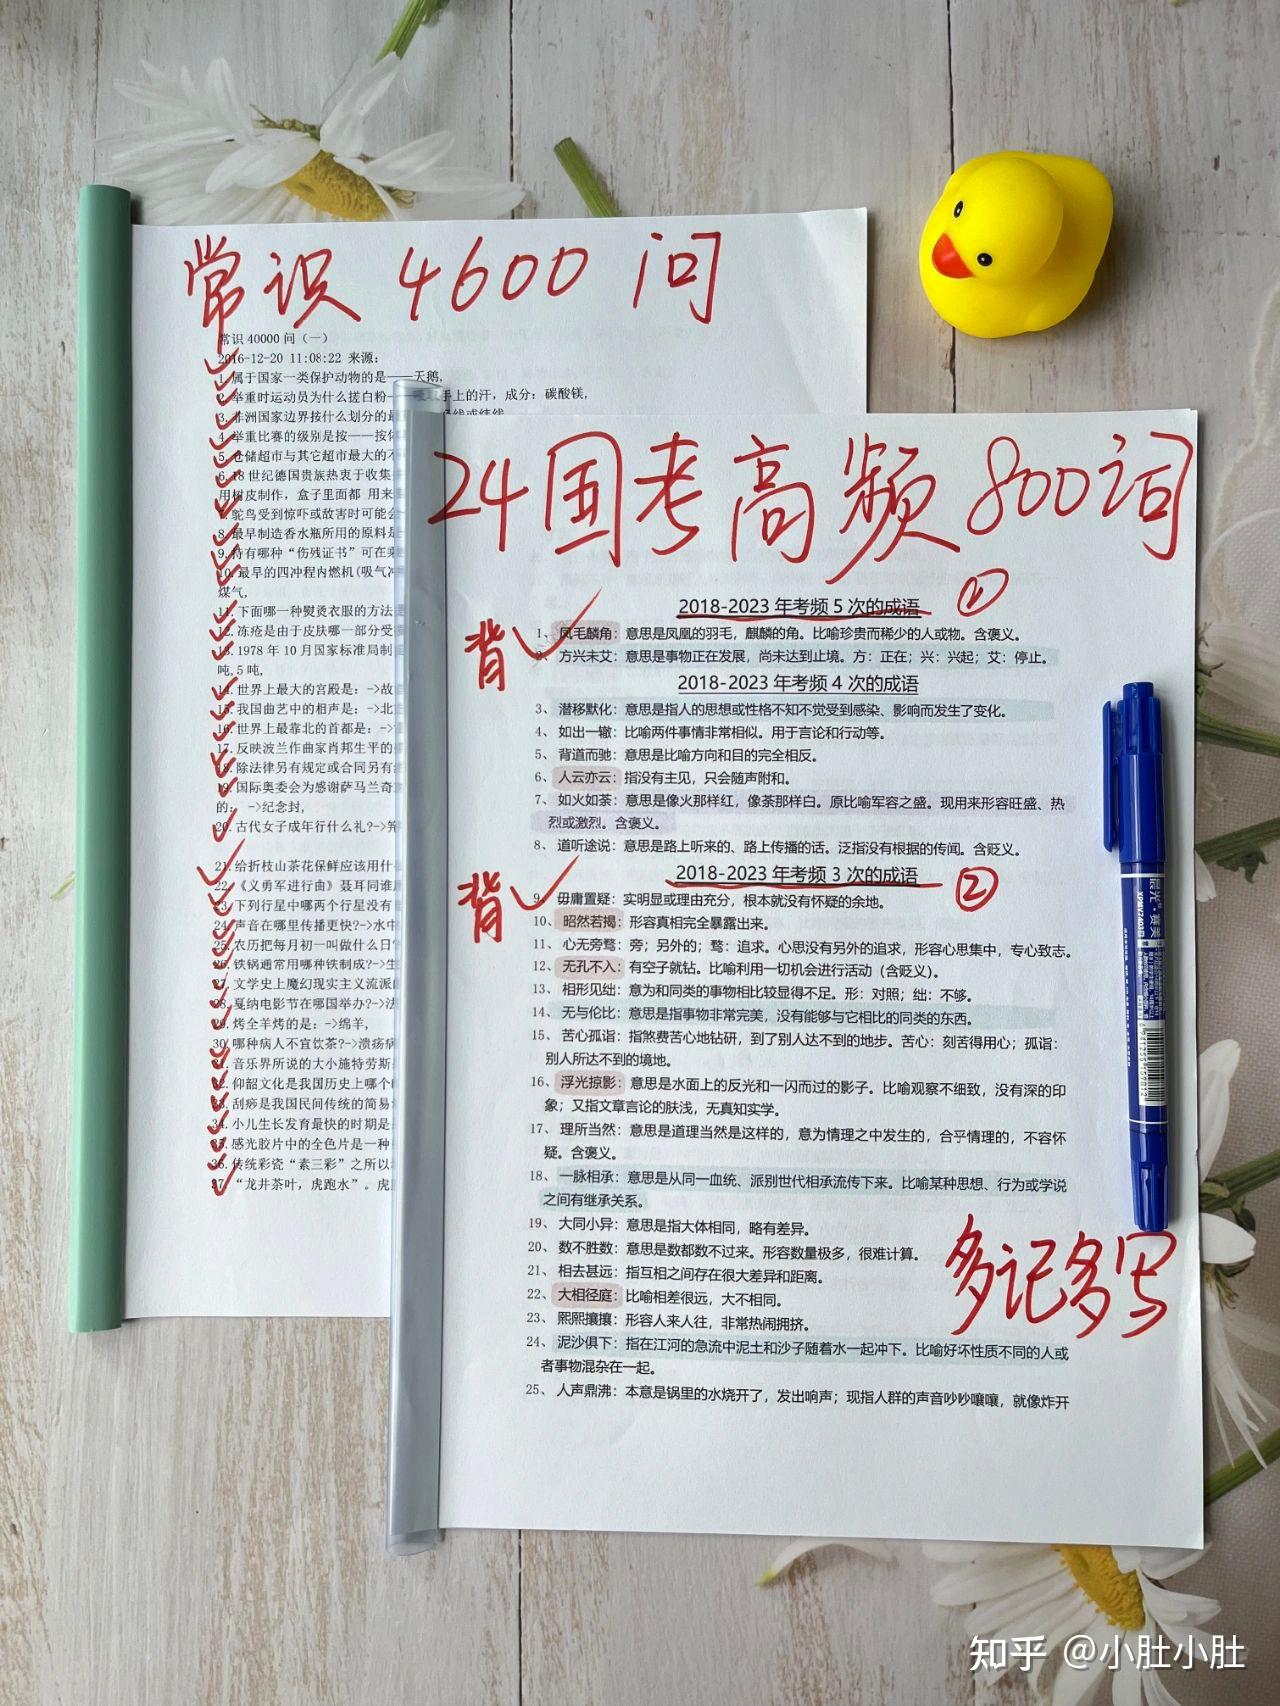 常识 4600 问
常识40000问（一）
2016-12-20 11:08:22 来源：
1.属于国家一类保护动物的是——天鹅,
2.举重时运动员为什么搓白粉—
手上的汗，成分：碳酸镁,
3.非洲国家边界按什么划分的最
经线或纬线
4.举重比赛的级别是按——按体
5.仓储超市与其它超市最大的不
6.18世纪德国贵族热衷于收集
用树皮制作，盒子里面都 用来
7.鸵鸟受到惊吓或敌害时可能会
8.最早制造香水瓶所用的原料是
9.持有哪种“伤残证书”可在乘
10.最早的四冲程内燃机(吸气冲
煤气,
11.下面哪一种熨烫衣服的方法
12.冻疮是由于皮肤哪一部分受
13.1978年10月国家标准局制
吨,5吨,
14.世界上最大的宫殿是：->故
15.我国曲艺中的相声是：->北
16.世界上最靠北的首都是：->
17.反映波兰作曲家肖邦生平的
18.除法律另有规定或合同另有
19.国际奥委会为感谢萨马兰奇
的： ->纪念封,
20.古代女子成年行什么礼?->笄
21.给折枝山茶花保鲜应该用什
22.《义勇军进行曲》聂耳同谁
23.下列行星中哪两个行星没有
24.声音在哪里传播更快?->水中
25.农历把每月初一叫做什么日
26.铁锅通常用哪种铁制成?->生
27.文学史上魔幻现实主义流派
28.戛纳电影节在哪国举办?->法
29.烤全羊烤的是：->绵羊,
30.哪种病人不宜饮茶?->溃疡病
31.音乐界所说的大小施特劳斯
32.仰韶文化是我国历史上哪个
33.刮痧是我国民间传统的简易
34.小儿生长发育最快的时期是
35.感光胶片中的全色片是一种
36.传统彩瓷“素三彩”之所以
37.“龙井茶叶，虎跑水”。虎
24国考高频800词
2018-2023年考频5次的成语 ①
背
1、 凤毛麟角：意思是凤凰的羽毛，麒麟的角。比喻珍贵而稀少的人或物。含褒义。
2、 方兴未艾：意思是事物正在发展，尚未达到止境。方：正在；兴：兴起；艾：停止。
2018-2023年考频4次的成语
3、 潜移默化：意思是指人的思想或性格不知不觉受到感染、影响而发生了变化。
4、 如出一辙：比喻两件事情非常相似。用于言论和行动等。
5、 背道而驰：意思是比喻方向和目的完全相反。
6、 人云亦云：指没有主见，只会随声附和。
7、 如火如荼：意思是像火那样红，像荼那样白。原比喻军容之盛。现用来形容旺盛、热
烈或激烈。含褒义。
8、 道听途说：意思是路上听来的、路上传播的话。泛指没有根据的传闻。含贬义。
2018-2023年考频3次的成语 ②
背
9、 毋庸置疑：实明显或理由充分，根本就没有怀疑的余地。
10、 昭然若揭：形容真相完全暴露出来。
11、 心无旁骛：旁；另外的；骛：追求。心思没有另外的追求，形容心思集中，专心致志。
12、 无孔不入：有空子就钻。比喻利用一切机会进行活动（含贬义）。
13、 相形见绌：意为和同类的事物相比较显得不足。形：对照；绌：不够。
14、 无与伦比：意思是指事物非常完美，没有能够与它相比的同类的东西。
15、 苦心孤诣：指煞费苦心地钻研，到了别人达不到的地步。苦心：刻苦得用心；孤诣：
别人所达不到的境地。
16、 浮光掠影：意思是水面上的反光和一闪而过的影子。比喻观察不细致，没有深的印
象；又指文章言论的肤浅，无真知实学。
17、 理所当然：意思是道理当然是这样的，意为情理之中发生的，合乎情理的，不容怀
疑。含褒义。
18、 一脉相承：意思是从同一血统、派别世代相承流传下来。比喻某种思想、行为或学说
之间有继承关系。
19、 大同小异：意思是指大体相同，略有差异。
20、 数不胜数：意思是数都数不过来。形容数量极多，很难计算。
21、 相去甚远：指互相之间存在很大差异和距离。
22、 大相径庭：比喻相差很远，大不相同。
23、 熙熙攘攘：形容人来人往，非常热闹拥挤。
24、 泥沙俱下：指在江河的急流中泥土和沙子随着水一起冲下。比喻好坏性质不同的人或
者事物混杂在一起。
25、 人声鼎沸：本意是锅里的水烧开了，发出响声；现指人群的声音吵吵嚷嚷，就像炸开
多记多写
晨光·赛美
XPMV7403B
知乎 @小肚小肚